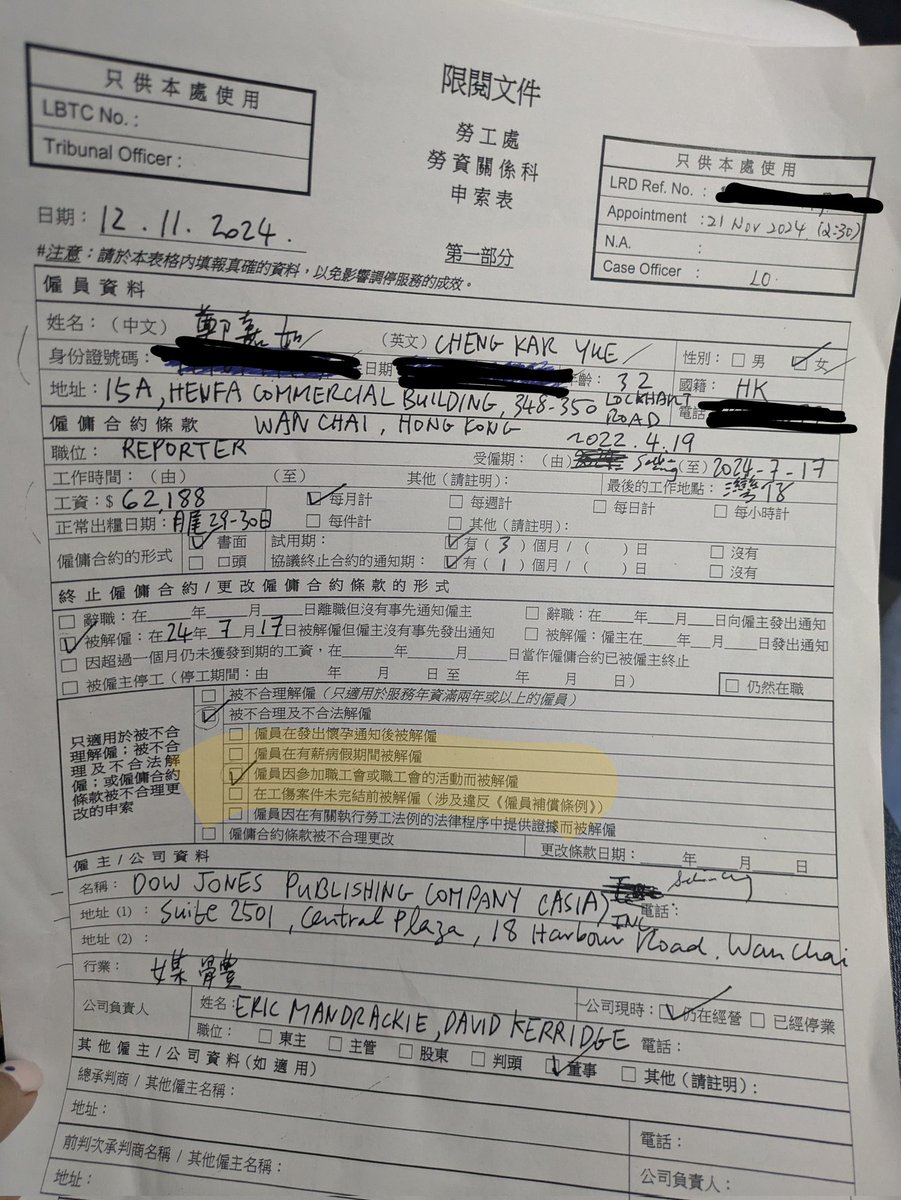 只供本處使用
LBTC No. :
Tribunal Officer :
限閱文件
勞工處
勞資關係科
申索表
只供本處使用
LRD Ref. No. :
Appointment : 21 Nov 2024 (2:30)
N.A. :
Case Officer : LO.
日期: 12.11.2024.
第一部分
#注意:請於本表格內填報真確的資料,以免影響調停服務的成效。
僱員資料
姓名:(中文) 鄭嘉如 (英文) CHENG KAR YUE 性別: 男 女
身份證號碼: 日期 年齡: 32 國籍: HK
地址: 15A, HENFA COMMERCIAL BUILDING, 348-350 LOCKHART ROAD 電話
WAN CHAI, HONG KONG
僱傭合約條款
職位: REPORTER 受僱期:(由) 2022.4.19 (至) 2024-7-17
工作時間:(由) (至) 其他(請註明): 最後的工作地點: 灣仔
工資:$ 62,188 每月計 每週計 每日計 每小時計
正常出糧日期: 月尾29-30日 每件計 其他(請註明):
僱傭合約的形式 書面 試用期: 有( 3 )個月/( )日 沒有
口頭 協議終止合約的通知期: 有( 1 )個月/( )日 沒有
終止僱傭合約/更改僱傭合約條款的形式
辭職:在 年 月 日離職但沒有事先通知僱主 辭職:在 年 月 日向僱主發出通知
被解僱:在24年7月17日被解僱但僱主沒有事先發出通知 被解僱:僱主在 年 月 日發出通知
因超過一個月仍未獲發到期的工資,在 年 月 日當作僱傭合約已被僱主終止
被僱主停工(停工期間:由 年 月 日 至 年 月 日) 仍然在職
只適用於被不合理解僱;被不合理及不合法解僱;或僱傭合約條款被不合理更改的申索
被不合理解僱(只適用於服務年資滿兩年或以上的僱員)
被不合理及不合法解僱
僱員在發出懷孕通知後被解僱
僱員在有薪病假期間被解僱
僱員因參加職工會或職工會的活動而被解僱
在工傷案件未完結前被解僱(涉及違反《僱員補償條例》)
僱員因在有關執行勞工法例的法律程序中提供證據而被解僱
僱傭合約條款被不合理更改 更改條款日期: 年 月 日
僱主/公司資料
名稱: DOW JONES PUBLISHING COMPANY (ASIA) INC 電話:
地址 (1): Suite 2501, Central Plaza, 18 Harbour Road, Wan Chai
地址 (2):
行業: 媒體
公司負責人 姓名: ERIC MANDRACKIE, DAVID KERRIDGE 公司現時: 仍在經營 已經停業
職位: 東主 主管 股東 判頭 董事 其他(請註明): 電話:
其他僱主/公司資料(如適用)
總承判商/其他僱主名稱:
地址: 電話:
前判次承判商名稱/其他僱主名稱:
地址: 公司負責人: